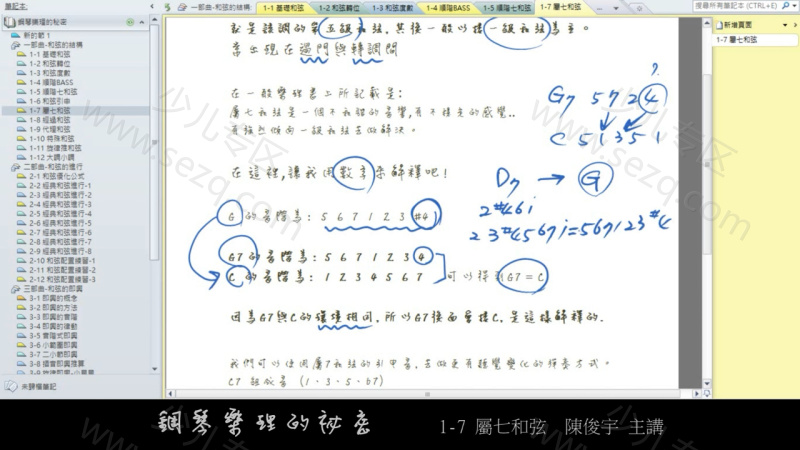 筆記本
鋼琴樂理的祕密
新的節 1
一部曲-和弦的結構
1-1 基礎和弦
1-2 和弦轉位
1-3 和弦度數
1-4 順階BASS
1-5 順階七和弦
1-6 和弦引申
1-7 屬七和弦
1-8 經過和弦
1-9 代理和弦
1-10 特殊和弦
1-11 旋律推和弦
1-12 大調小調
二部曲-和弦的進行
2-1 和弦優化公式
2-2 經典和弦進行-1
2-3 經典和弦進行-2
2-4 經典和弦進行-3
2-5 經典和弦進行-4
2-6 經典和弦進行-5
2-7 經典和弦進行-6
2-8 經典和弦進行-7
2-9 經典和弦進行-8
2-10 和弦配置練習-1
2-11 和弦配置練習-2
2-12 和弦配置練習-3
三部曲-和弦的即興
3-1 即興的概念
3-2 即興的方法
3-3 即興的音階
3-4 即興的律動
3-5 音階式即興
3-6 小範圍即興
3-7 二小節即興
3-8 插音即興推算
未歸檔筆記
一部曲-和弦的結構
1-1 基礎和弦
1-2 和弦轉位
1-3 和弦度數
1-4 順階BASS
1-5 順階七和弦
1-7 屬七和弦
搜尋所有筆記本 (CTRL+E)
新增頁面
1-7 屬七和弦
就是該調的第五級和弦,其後一般以接一級和弦為主。
常出現在過門與轉調間
在一般樂理書上所記載是:
屬七和弦是一個不和諧的音響,有不穩定的感覺..
有強烈傾向一級和弦去做解決。
在這裡,讓我用數字來解釋吧!
G 的音階為: 5 6 7 1 2 3 #4
G7 的音階為: 5 6 7 1 2 3 4
C 的音階為: 1 2 3 4 5 6 7
可以得到G7=C
因為G7與C的環境相同,所以G7後面會接C,是這樣解釋的.
我們可以使用屬7和弦的引申音,去做更有聽覺變化的彈奏方式。
C7 組成音 (1、3、5、b7)
?
G7 5 7 2 4
C 5 1 3 5 1
D7 → G
2 #4 6 i
2 3 #4 5 6 7 i = 5 6 7 1 2 3 #4
鋼琴樂理的祕密
1-7 屬七和弦 陳俊宇 主講
少儿专区
www.sezq.com